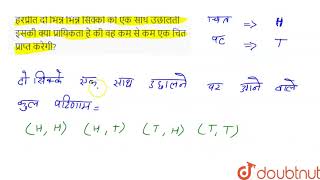 हरप्रीत दो भिन्न भिन्न सिक्कों को एक साथ उछालती
इसकी क्या प्रायिकता है की वह कम से कम एक चित
प्राप्त करेगी?
चित => H
पट => T
दो सिक्के एक साथ उछालने पर आने वाले
कुल परिणाम =
(H, H) (H, T) (T, H) (T, T)
doubtnut